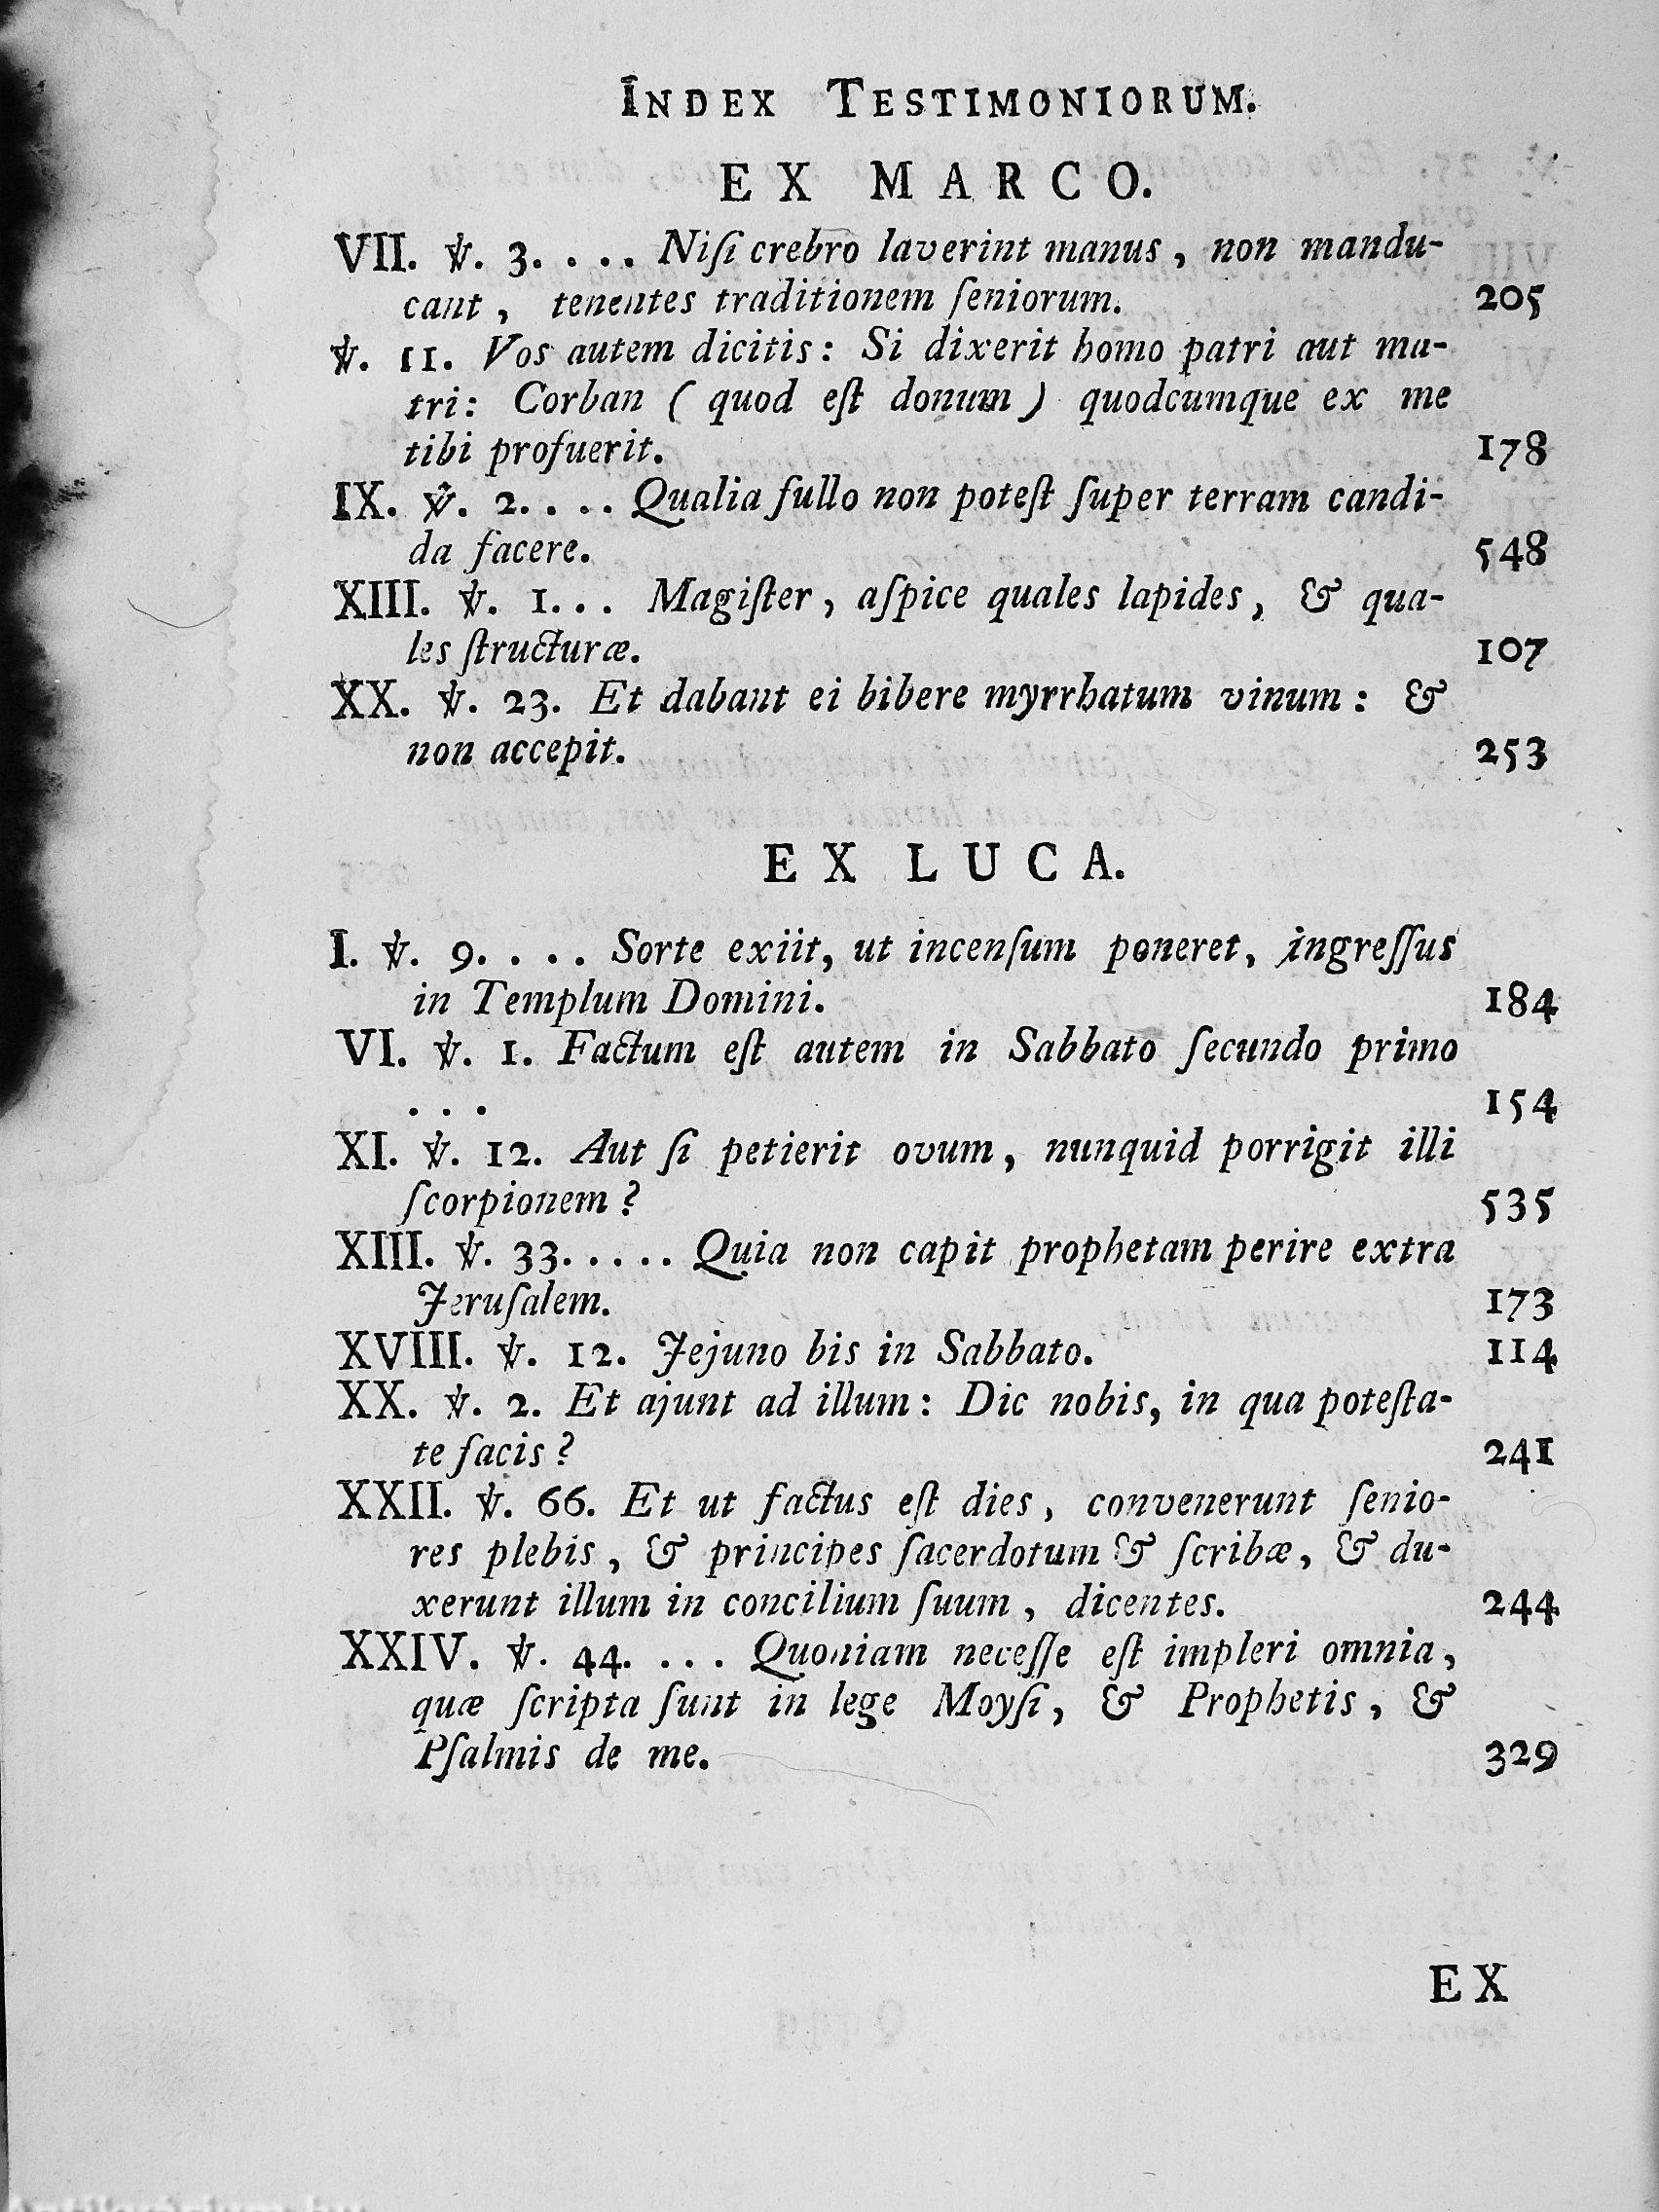 INDEX TESTIMONIORUM.
EX MARCO.
VII. ℣. 3. . . . Niſi crebro laverint manus, non mandu-
cant, tenentes traditionem ſeniorum. 205
℣. 11. Vos autem dicitis: Si dixerit homo patri aut ma-
tri: Corban (quod eſt donum) quodcumque ex me
tibi profuerit. 178
IX. ℣. 2. . . . Qualia fullo non poteſt ſuper terram candi-
da facere. 548
XIII. ℣. 1. . . Magiſter, aſpice quales lapides, & qua-
les ſtructuræ. 107
XX. ℣. 23. Et dabant ei bibere myrrhatum vinum: &
non accepit. 253
EX LUCA.
I. ℣. 9. . . . Sorte exiit, ut incenſum poneret, ingreſſus
in Templum Domini. 184
VI. ℣. 1. Factum eſt autem in Sabbato ſecundo primo
. . . 154
XI. ℣. 12. Aut ſi petierit ovum, nunquid porrigit illi
ſcorpionem? 535
XIII. ℣. 33. . . . . Quia non capit prophetam perire extra
Jeruſalem. 173
XVIII. ℣. 12. Jejuno bis in Sabbato. 114
XX. ℣. 2. Et ajunt ad illum: Dic nobis, in qua poteſta-
te facis? 241
XXII. ℣. 66. Et ut factus eſt dies, convenerunt ſenio-
res plebis, & principes ſacerdotum & ſcribæ, & du-
xerunt illum in concilium ſuum, dicentes. 244
XXIV. ℣. 44. . . . Quoniam neceſſe eſt impleri omnia,
quæ ſcripta ſunt in lege Moyſi, & Prophetis, &
Pſalmis de me. 329
EX